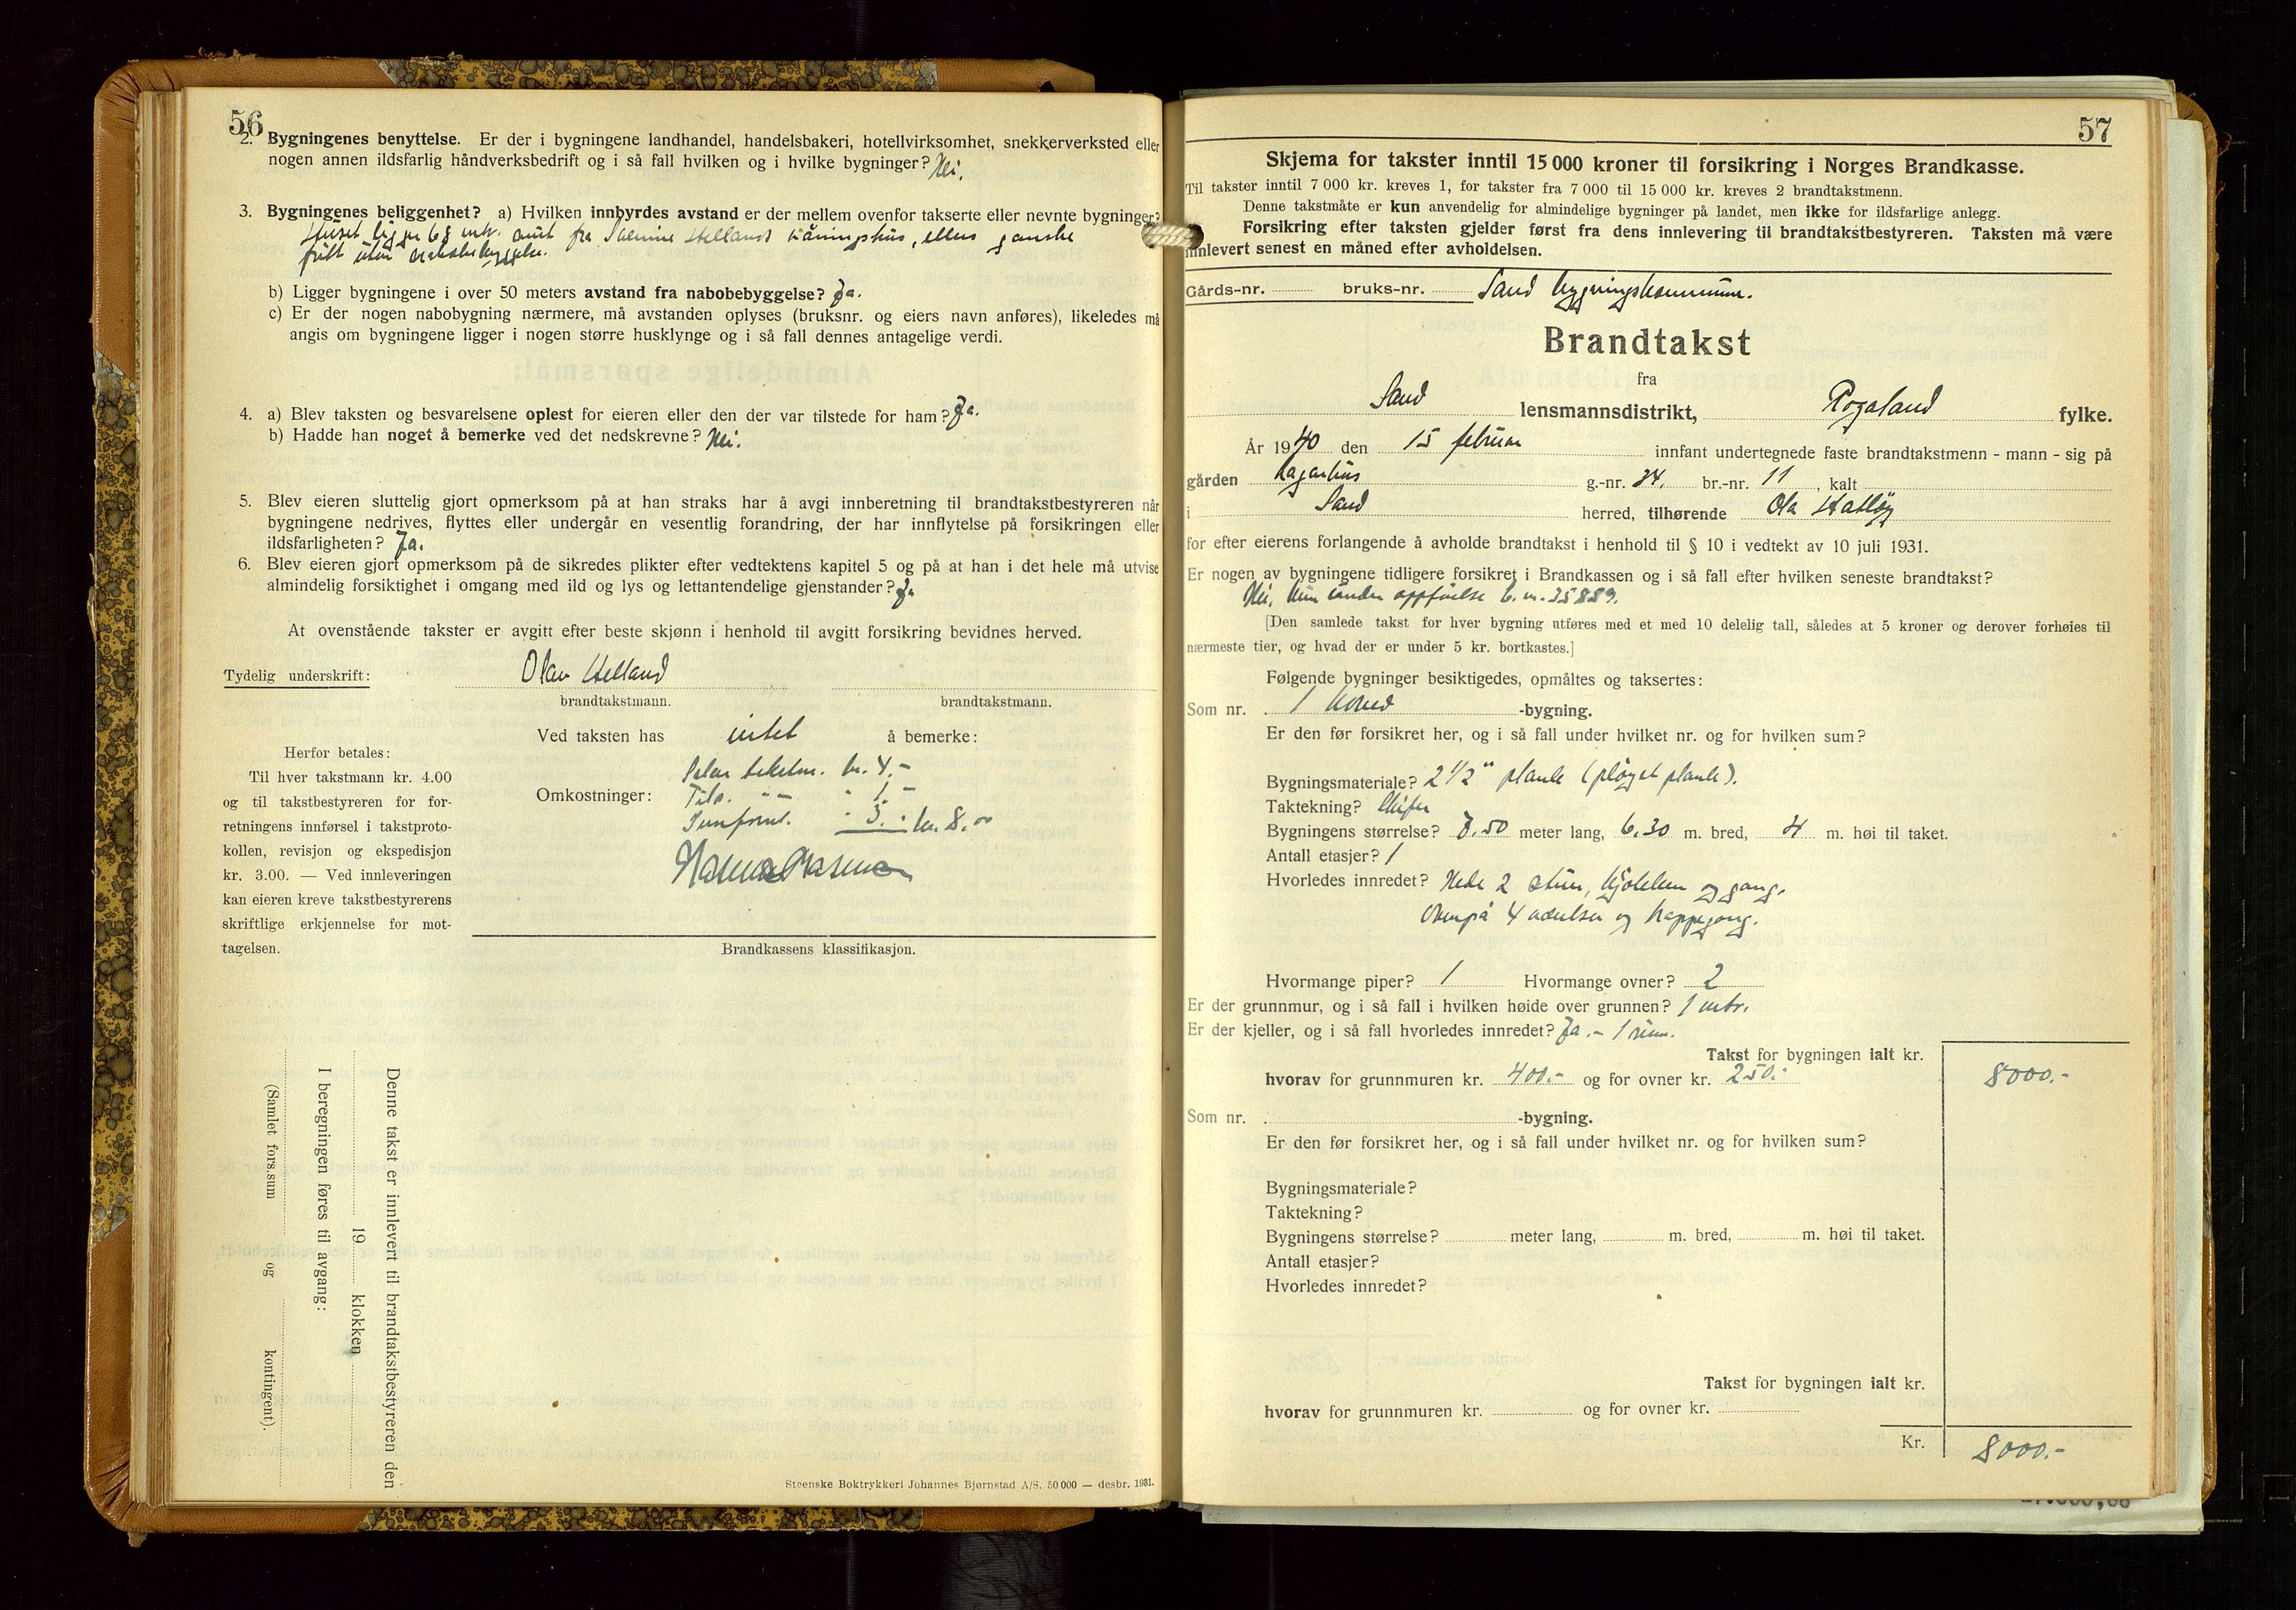 56
2. Bygningenes benyttelse. Er der i bygningene landhandel, handelsbakeri, hotellvirksomhet, snekkerverksted eller
nogen annen ildsfarlig håndverksbedrift og i så fall hvilken og i hvilke bygninger? Nei.
3. Bygningenes beliggenhet? a) Hvilken innbyrdes avstand er der mellem ovenfor takserte eller nevnte bygninger?
Huset ligger 68 mtr. fra Hellands våningshus, ellers ganske
fritt uten nabobebyggelse.
b) Ligger bygningene i over 50 meters avstand fra nabobebyggelse? Ja.
c) Er der nogen nabobygning nærmere, må avstanden oplyses (bruksnr. og eiers navn anføres), likeledes må
angis om bygningene ligger i nogen større husklynge og i så fall dennes antagelige verdi.
4. a) Blev taksten og besvarelsene oplest for eieren eller den der var tilstede for ham? Ja.
b) Hadde han noget å bemerke ved det nedskrevne? Nei.
5. Blev eieren sluttelig gjort opmerksom på at han straks har å avgi innberetning til brandtakstbestyreren når
bygningene nedrives, flyttes eller undergår en vesentlig forandring, der har innflytelse på forsikringen eller
ildsfarligheten? Ja.
6. Blev eieren gjort opmerksom på de sikredes plikter efter vedtektens kapitel 5 og på at han i det hele må utvise
almindelig forsiktighet i omgang med ild og lys og lettantendelige gjenstander? Ja
At ovenstående takster er avgitt efter beste skjønn i henhold til avgitt forsikring bevidnes herved.
Tydelig underskrift: Olav Helland
brandtakstmann. brandtakstmann.
Ved taksten has intet å bemerke:
Herfor betales:
Til hver takstmann kr. 4.00
og til takstbestyreren for for-
retningens innførsel i takstproto-
kollen, revisjon og ekspedisjon
kr. 3.00. — Ved innleveringen
kan eieren kreve takstbestyrerens
skriftlige erkjennelse for mot-
tagelsen.
kr. 4.-
Omkostninger: " 1.-
" 3.- kr. 8.00
Brandkassens klassifikasjon.
Denne takst er innlevert til brandtakstbestyreren den
19 klokken
I beregningen føres til avgang:
(Samlet fors.sum og kontingent).
Steenske Boktrykkeri Johannes Bjørnstad A/S. 50 000 — desbr. 1931.
57
Skjema for takster inntil 15 000 kroner til forsikring i Norges Brandkasse.
Til takster inntil 7 000 kr. kreves 1, for takster fra 7 000 til 15 000 kr. kreves 2 brandtakstmenn.
Denne takstmåte er kun anvendelig for almindelige bygninger på landet, men ikke for ildsfarlige anlegg.
Forsikring efter taksten gjelder først fra dens innlevering til brandtakstbestyreren. Taksten må være
innlevert senest en måned efter avholdelsen.
Gårds-nr. bruks-nr. Sand bygningskommune.
Brandtakst
fra
Sand lensmannsdistrikt, Rogaland fylke.
År 1940 den 15 februar innfant undertegnede faste brandtakstmenn - mann - sig på
gården Lagarhus g.-nr. 34. br.-nr. 11, kalt
i Sand herred, tilhørende Ola Hatløy
for efter eierens forlangende å avholde brandtakst i henhold til § 10 i vedtekt av 10 juli 1931.
Er nogen av bygningene tidligere forsikret i Brandkassen og i så fall efter hvilken seneste brandtakst?
Nei, kun under oppførelse b. nr. 35889.
[Den samlede takst for hver bygning utføres med et med 10 delelig tall, således at 5 kroner og derover forhøies til
nærmeste tier, og hvad der er under 5 kr. bortkastes.]
Følgende bygninger besiktigedes, opmåltes og taksertes:
Som nr. 1 hoved -bygning.
Er den før forsikret her, og i så fall under hvilket nr. og for hvilken sum?
Bygningsmateriale? 2 1/2" plank (pløyet plank).
Taktekning? Skifer
Bygningens størrelse? 7.50 meter lang, 6.30 m. bred, 4 m. høi til taket.
Antall etasjer? 1
Hvorledes innredet? Nede 2 stuer, kjøkken og gang.
Ovenpå 4 værelser og trappegang.
Hvormange piper? 1 Hvormange ovner? 2
Er der grunnmur, og i så fall i hvilken høide over grunnen? 1 mtr.
Er der kjeller, og i så fall hvorledes innredet? Ja.- 1 rum.
Takst for bygningen ialt kr.
hvorav for grunnmuren kr. 400.- og for ovner kr. 250.- 8000.-
Som nr. -bygning.
Er den før forsikret her, og i så fall under hvilket nr. og for hvilken sum?
Bygningsmateriale?
Taktekning?
Bygningens størrelse? meter lang, m. bred, m. høi til taket.
Antall etasjer?
Hvorledes innredet?
Takst for bygningen ialt kr.
hvorav for grunnmuren kr. og for ovner kr.
Kr. 8000.-